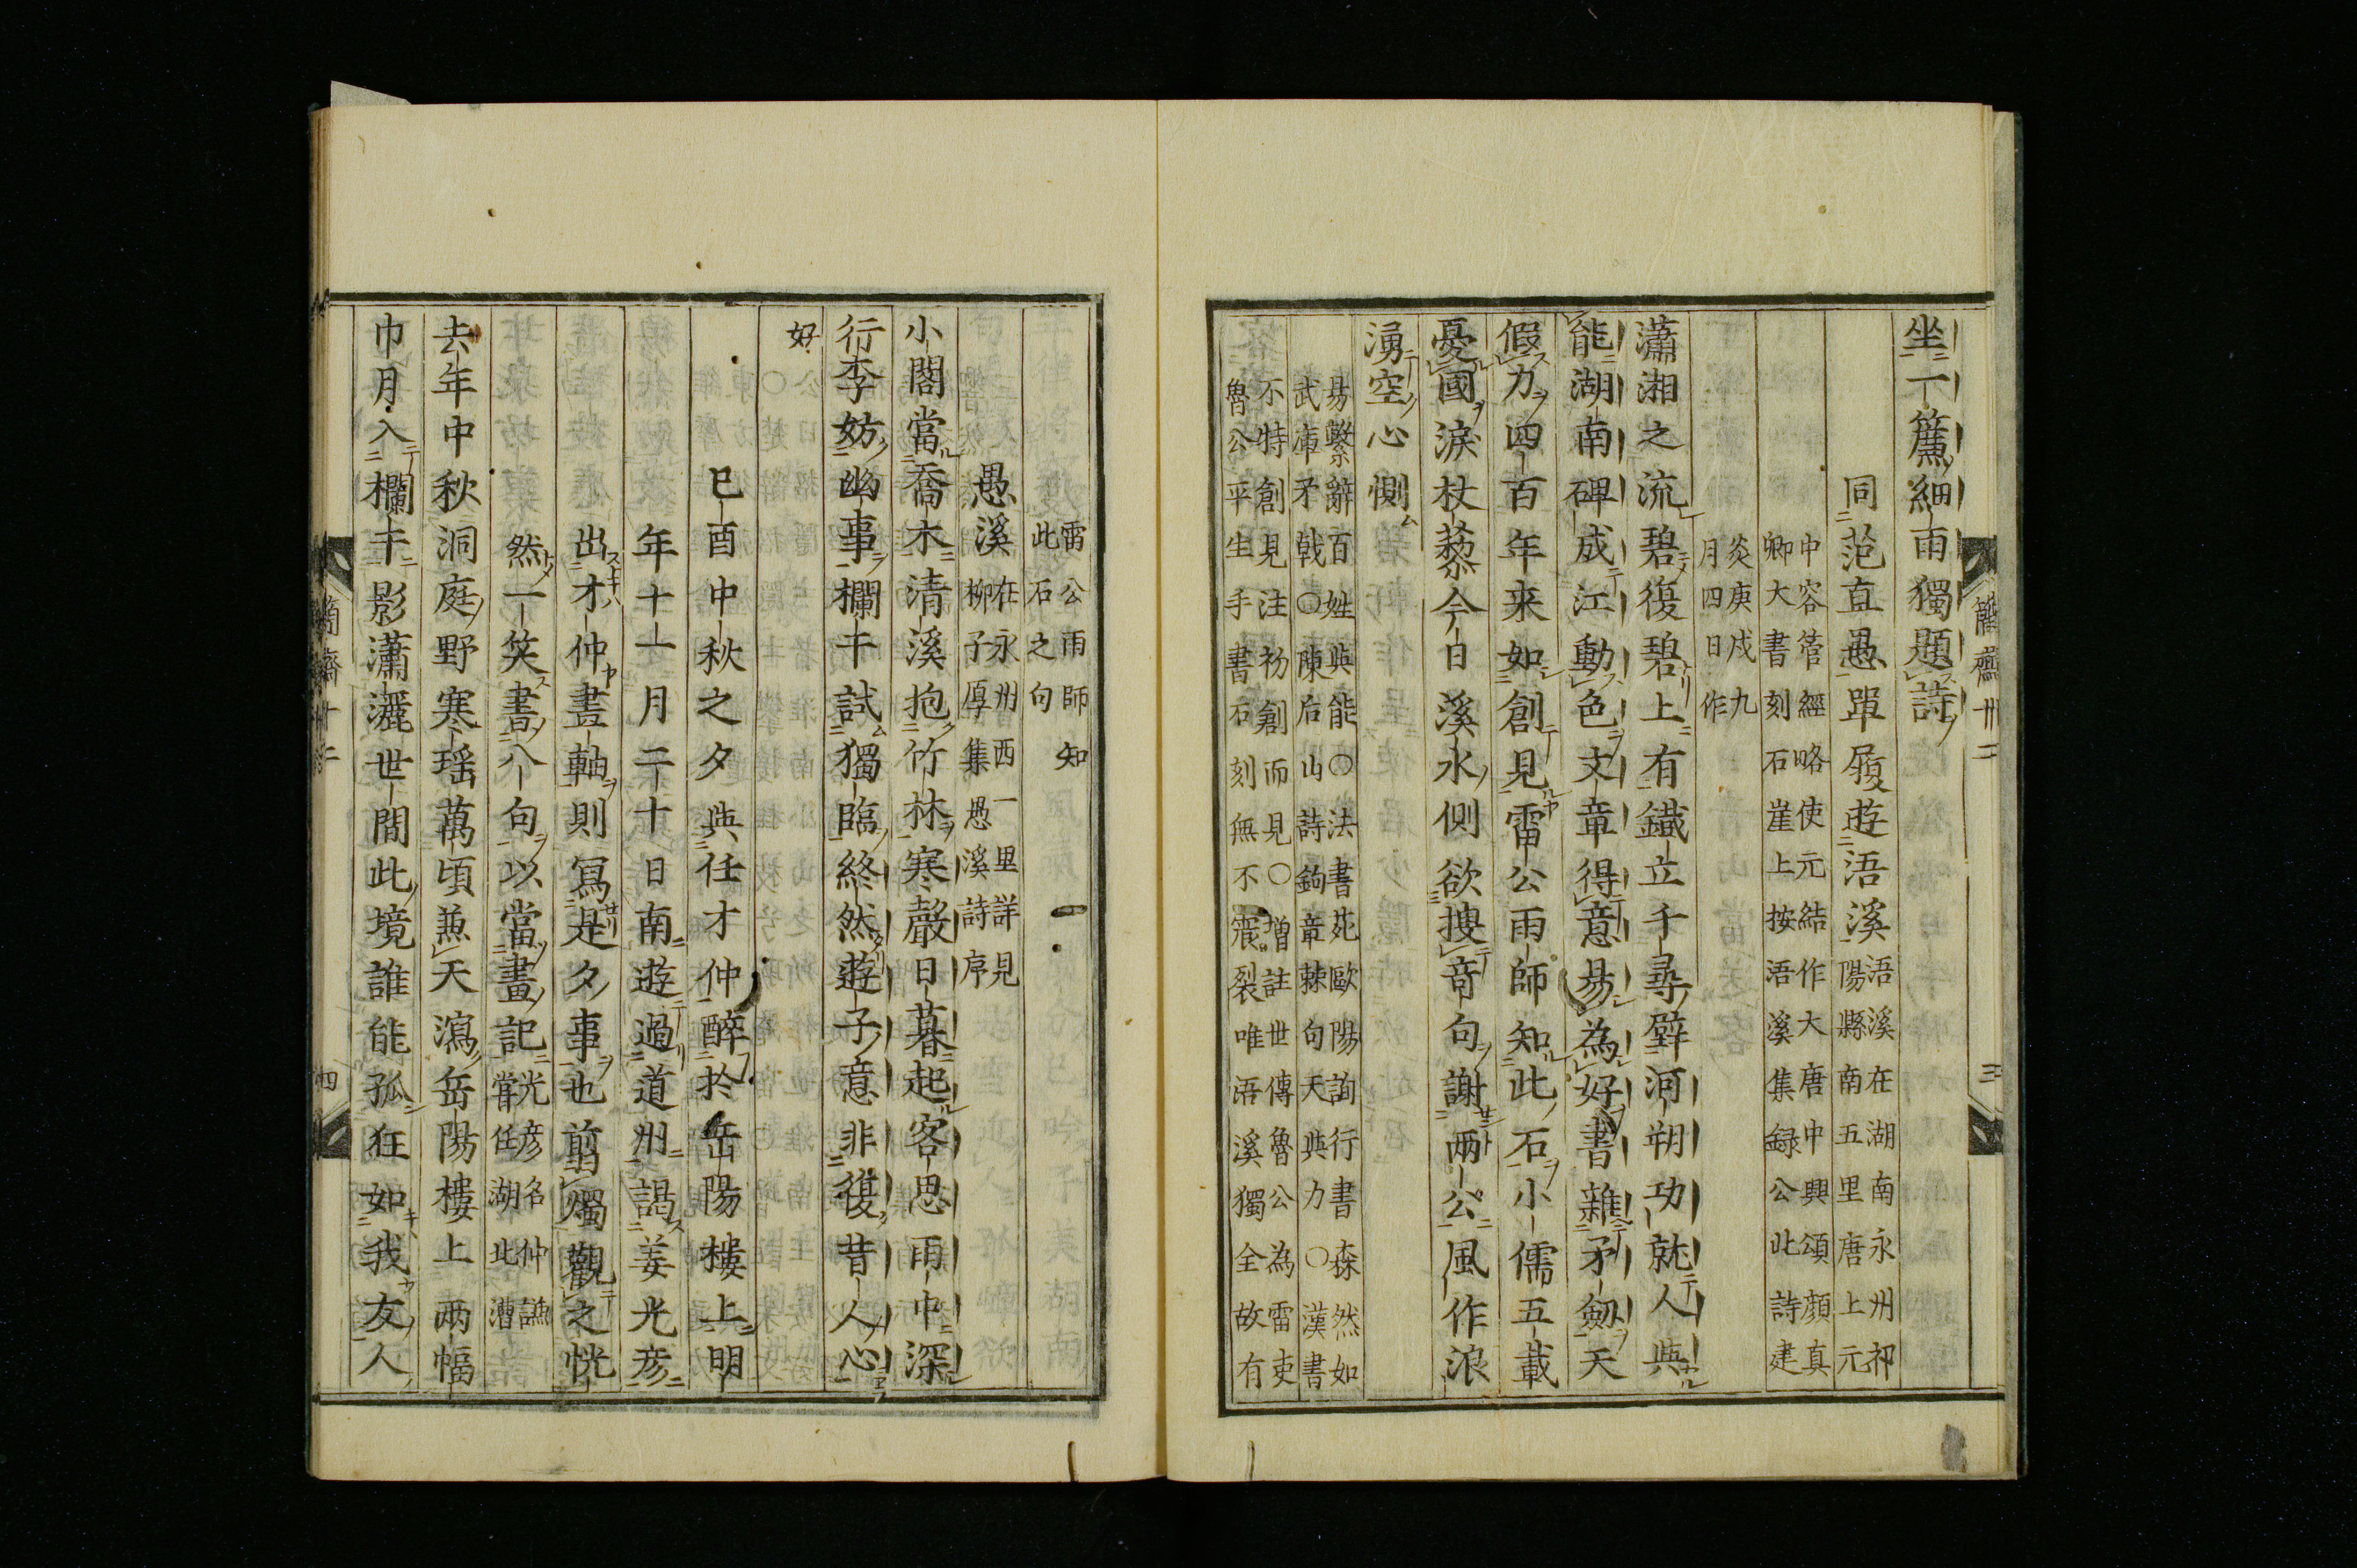 坐一篷細雨獨題詩
同范直愚單履遊浯溪
浯溪在湖南永州祁
陽縣南五里唐上元
中容管經略使元結作大唐中興頌顔真
卿大書刻石崖上按浯溪集録公此詩建
炎庚戍九
月四日作
瀟湘之流碧復碧上有鐡立千尋壁河朔功就人與
能湖南碑成江動色文章得意易為好書雜矛劔天
假力四百年来如創見雷公雨師知此石小儒五載
憂國淚杖藜今日溪水側欲搜竒句謝兩公風作浪
湧空心惻
易繫辭百姓與能〇法書苑歐陽詢行書森然如
武庫矛戟〇陳后山詩鉤章棘句天與力〇漢書
不特創見注初創而見〇增註世傳魯公為雷吏
魯公平生手書石刻無不震裂唯浯溪獨全故有
雷公雨師知
此石之句
愚溪
在永州西一里詳見
柳子厚集愚溪詩序
小閣當喬木清溪抱竹林寒聲日暮起客思雨中深
行李妨幽事欄干試獨臨終然遊子意非復昔人心
好
已酉中秋之夕與任才仲醉於岳陽樓上明
年十一月二十日南遊過道州謁姜光彦
出才仲畫軸則冩是夕事也剪燭觀之恍
然一笑書八句以當畫記
光彦名仲謙
嘗任湖北漕
去年中秋洞庭野寒瑶萬頃兼天瀉岳陽樓上兩幅
巾月入欄干影瀟灑世間此境誰能孤狂如我友人
簡齋十二
三
簡齋十二
四